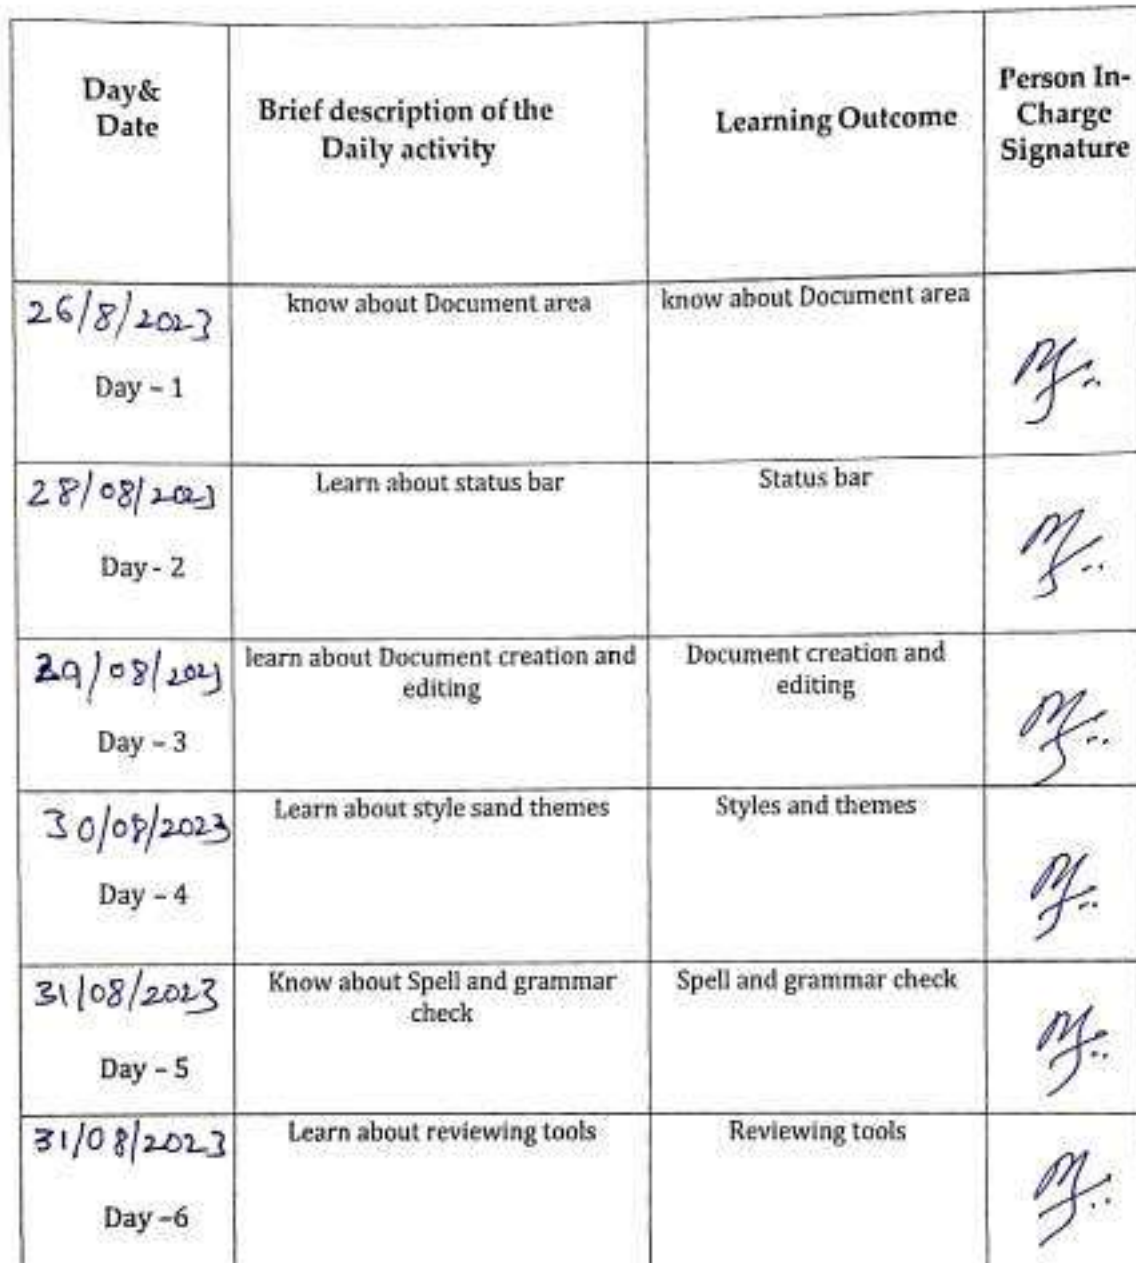 Day&
Date
Brief description of the
Daily activity
Learning Outcome
Person In-
Charge
Signature
26/8/2023
Day – 1
know about Document area
know about Document area
28/08/2023
Day - 2
Learn about status bar
Status bar
29/08/2023
Day – 3
learn about Document creation and
editing
Document creation and
editing
30/08/2023
Day – 4
Learn about style sand themes
Styles and themes
31/08/2023
Day – 5
Know about Spell and grammar
check
Spell and grammar check
31/08/2023
Day –6
Learn about reviewing tools
Reviewing tools